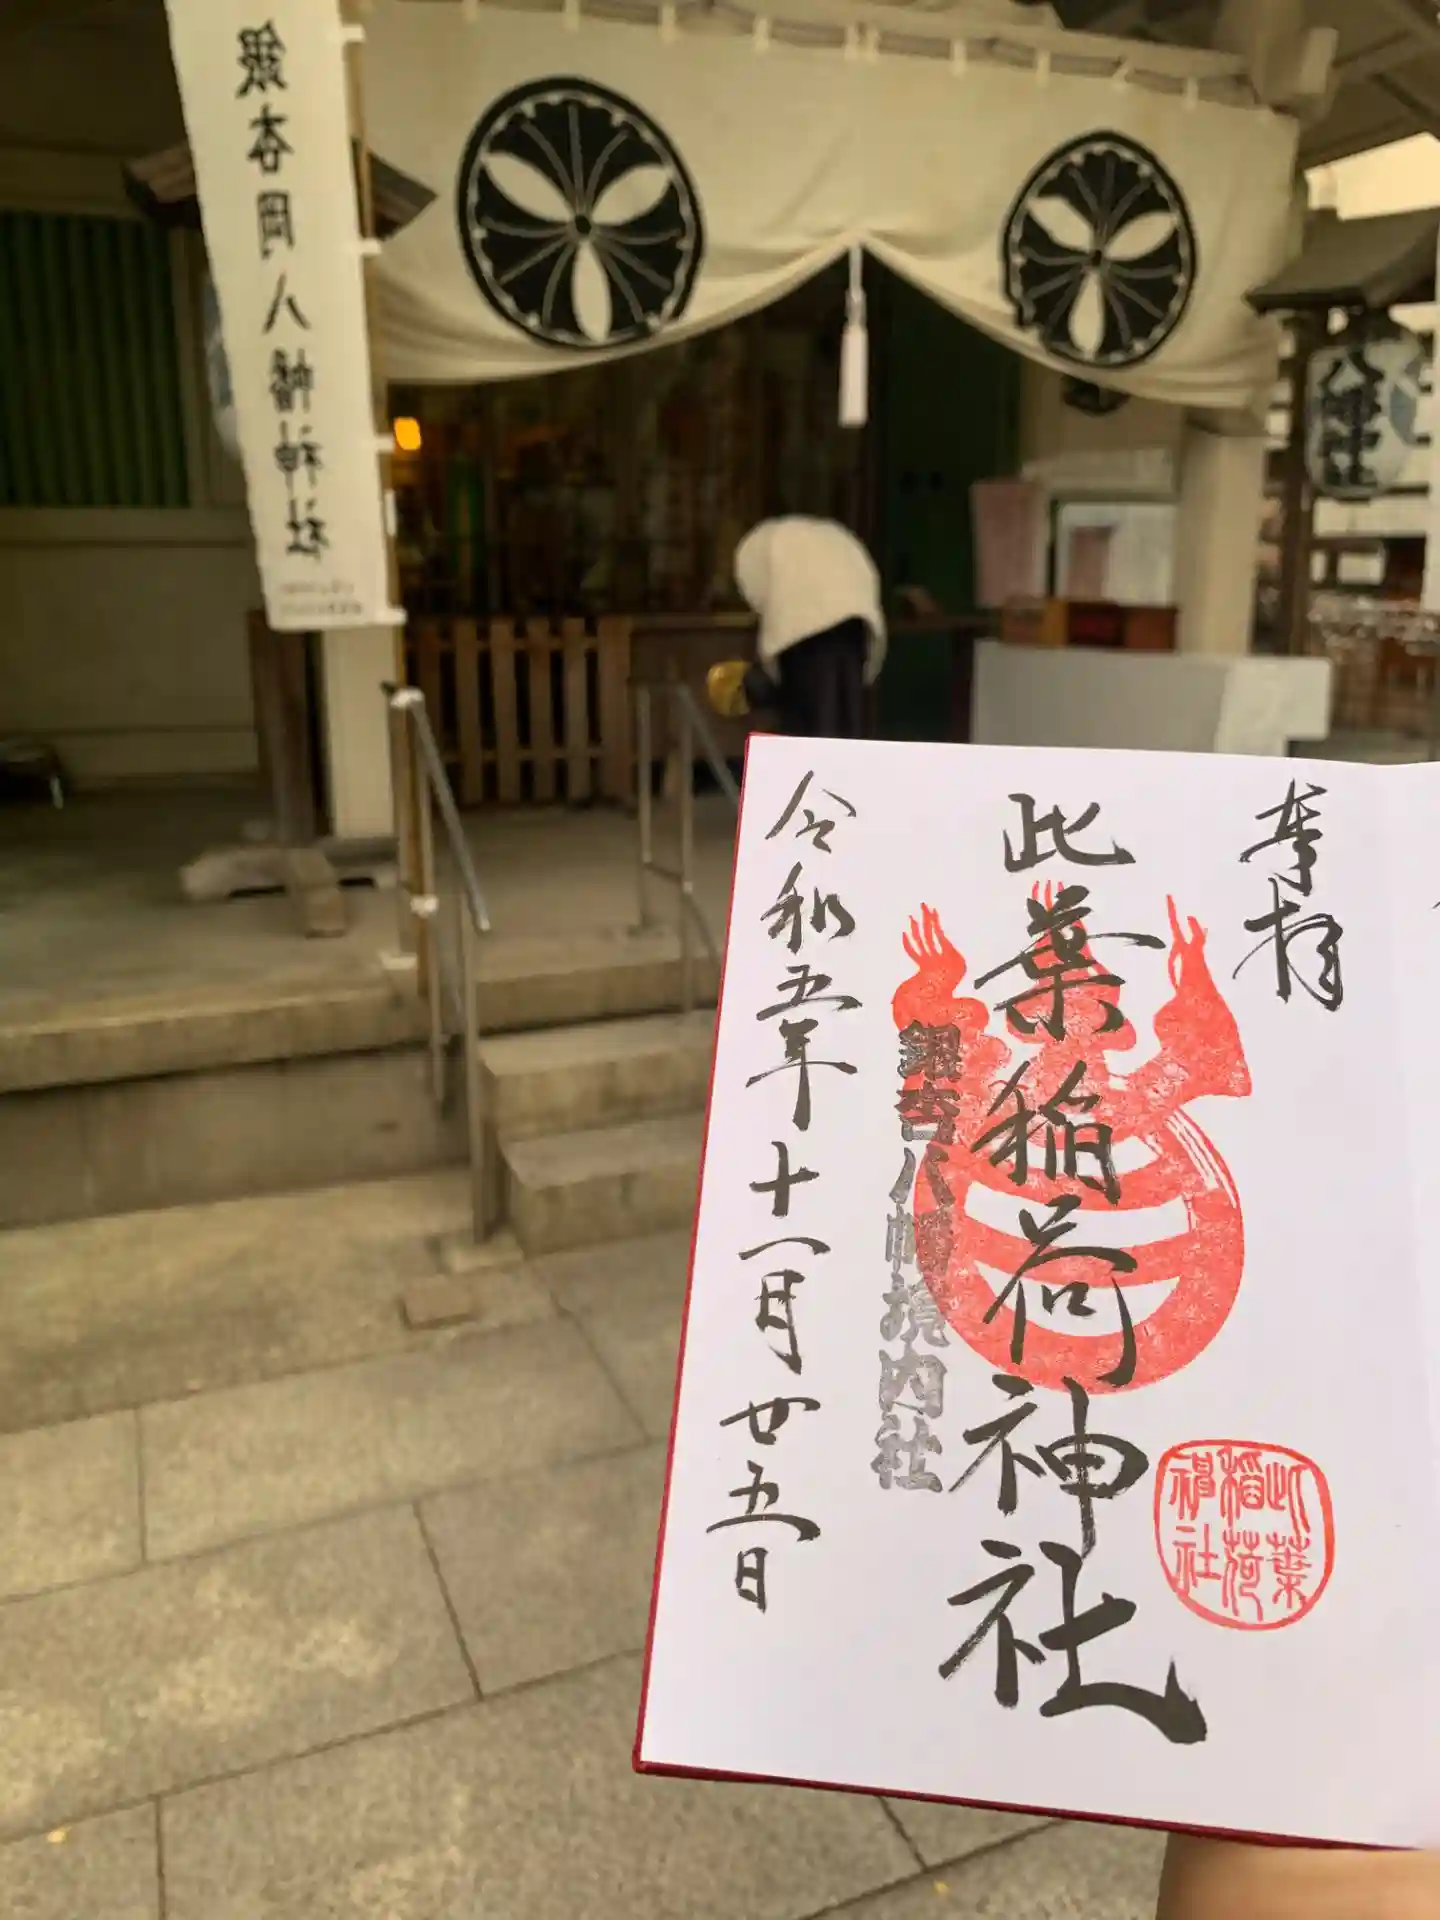 銀杏岡八幡神社
八幡神社
奉拝
此葉稲荷神社
銀杏八幡境内社
令和五年十一月廿五日
此葉
稲荷
神社